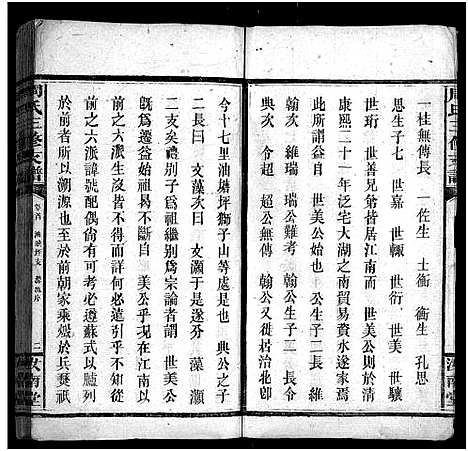 一桂無傳長　一佐生　士衡　衡生　孔思
思生子七　世嘉　世輙　世衍　世美　世驤
世珩　世善兄爺皆居江南而　世美公則於清
康熙二十一年泛宅大湖之南貿易資水遂家焉
此所謂益自　世美公始也　公生子二　長令
翰次　維瑞　瑞公難考　翰公生子二　長令
典次　令超　超公無傳　翰公又徙居治北卽
今十七里油塘坪獅子山等處是也　典公之子
二長曰　支藻次曰　支灝于是遂分　藻　灝
二支矣禮別子爲祖繼別爲宗論者謂　世美公
旣爲遷益始祖曷不斷自　美公乎不知江南以
前之六派尙皆不得而詳兹何必遽引乎不知從
前之六派諱號配偶尙有可考理合遵蘇式以臚列
於前者所以溯源也至於前朝家乘燬於兵燹祇
周氏三修支譜
卷首
二
汝南堂
周氏三修支譜
汝南堂